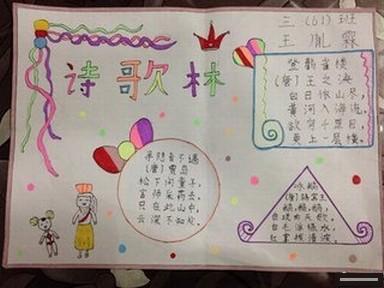 三(61)班
王胤霖
诗歌林
登鹳雀楼
(唐)王之
白日依山尽,
黄河入海流,
欲穷千里目,
更上一层楼。
寻隐者不遇
(唐)贾岛
松下问童子,
言师采药去,
只在此山中,
云深不知处。
咏鹅
(唐)骆宾王
鹅,鹅,鹅,
曲项向天歌,
白毛浮绿水,
红掌拨清波。